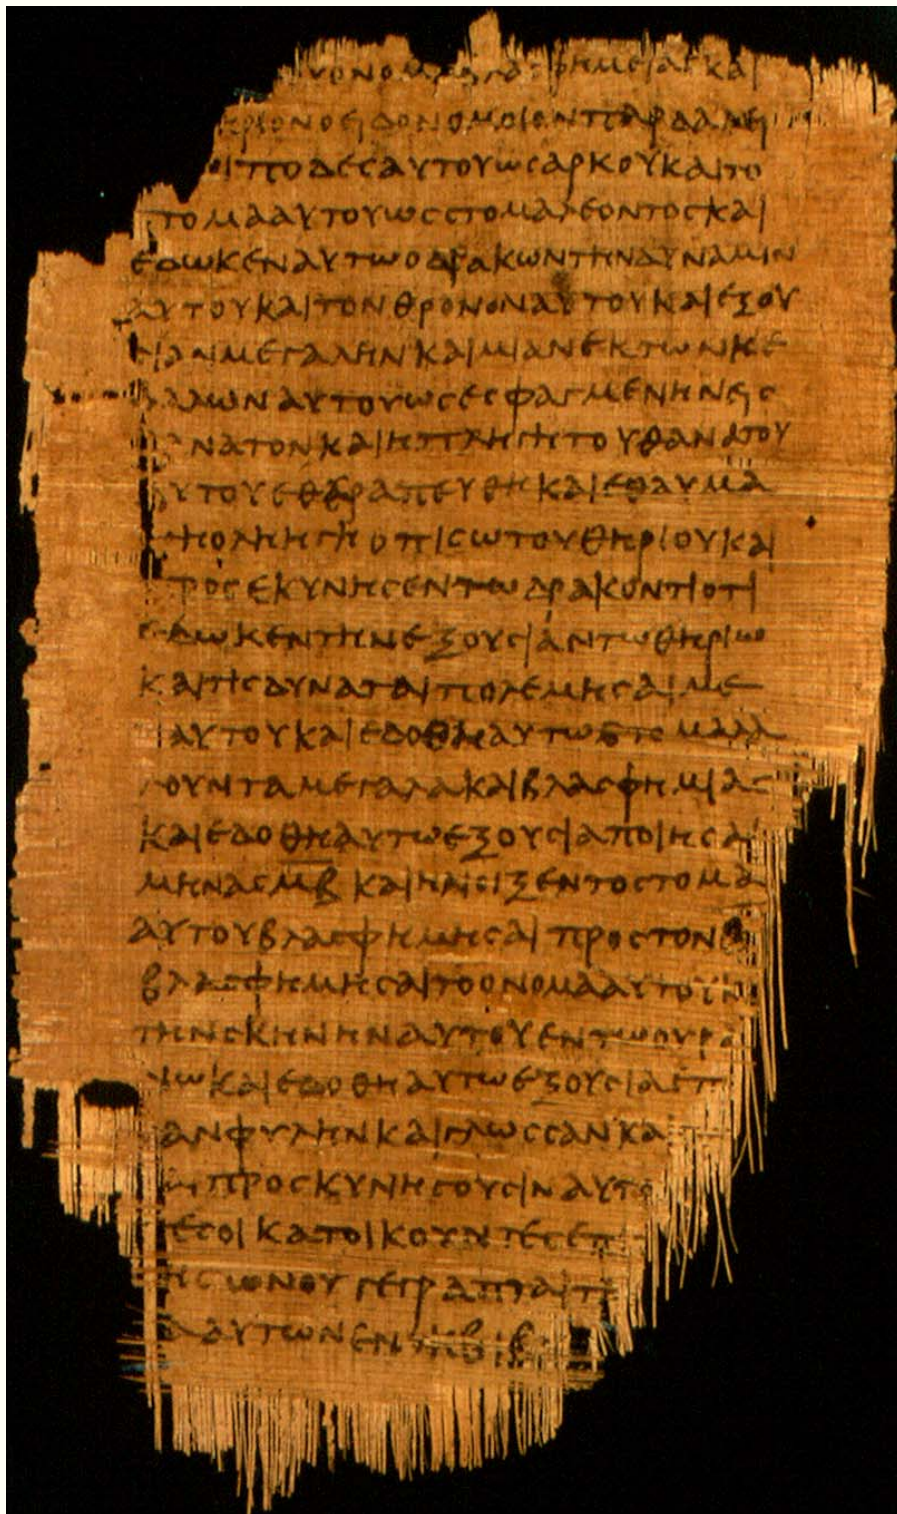 υονομα βλαϲφημειαϲ και
ηριονοειδονομοιονπαρδαλει
οιποδεϲαυτουωϲαρκουκαιτο
ϲτομααυτουωϲϲτομαλεοντοϲκαι
εδωκεναυτωοδρακωντηνδυναμιν
αυτουκαιτονθρονοναυτουκαιεξου
ϲιανμεγαληνκαιμιανεκτωνκε
φαλωναυτουωϲεϲφαγμενηνειϲ
θανατονκαιηπληγητουθανατου
αυτουεθεραπευθηκαιεθαυμα
ηοληηγηοπιϲωτουθηριουκαι
προϲεκυνηϲεντωδρακοντιοτι
εδωκεντηνεξουϲιαντωθηριω
καιτιϲδυναταιπολεμηϲαιμε
αυτουκαιεδοθηαυτωϲτομαλα
λουνταμεγαλακαιβλαϲφημιαϲ
καιεδοθηαυτωεξουϲιαποιηϲαι
μηναϲμ̅β̅ καιηνοιξεντοϲτομα
αυτουβλαϲφημηϲαι προϲτονθ
βλαϲφημηϲαιτοονομααυτουκ
τηνϲκηνηναυτουεντωουρα
νωκαιεδοθηαυτωεξουϲιαεπ
ανφυληνκαιγλωϲϲανκα
προϲκυνηϲουϲιναυτο
εϲοικατοικουντεϲεπ
ηϲωνουγεγραπταιτ
ααυτωνεντωβιβ